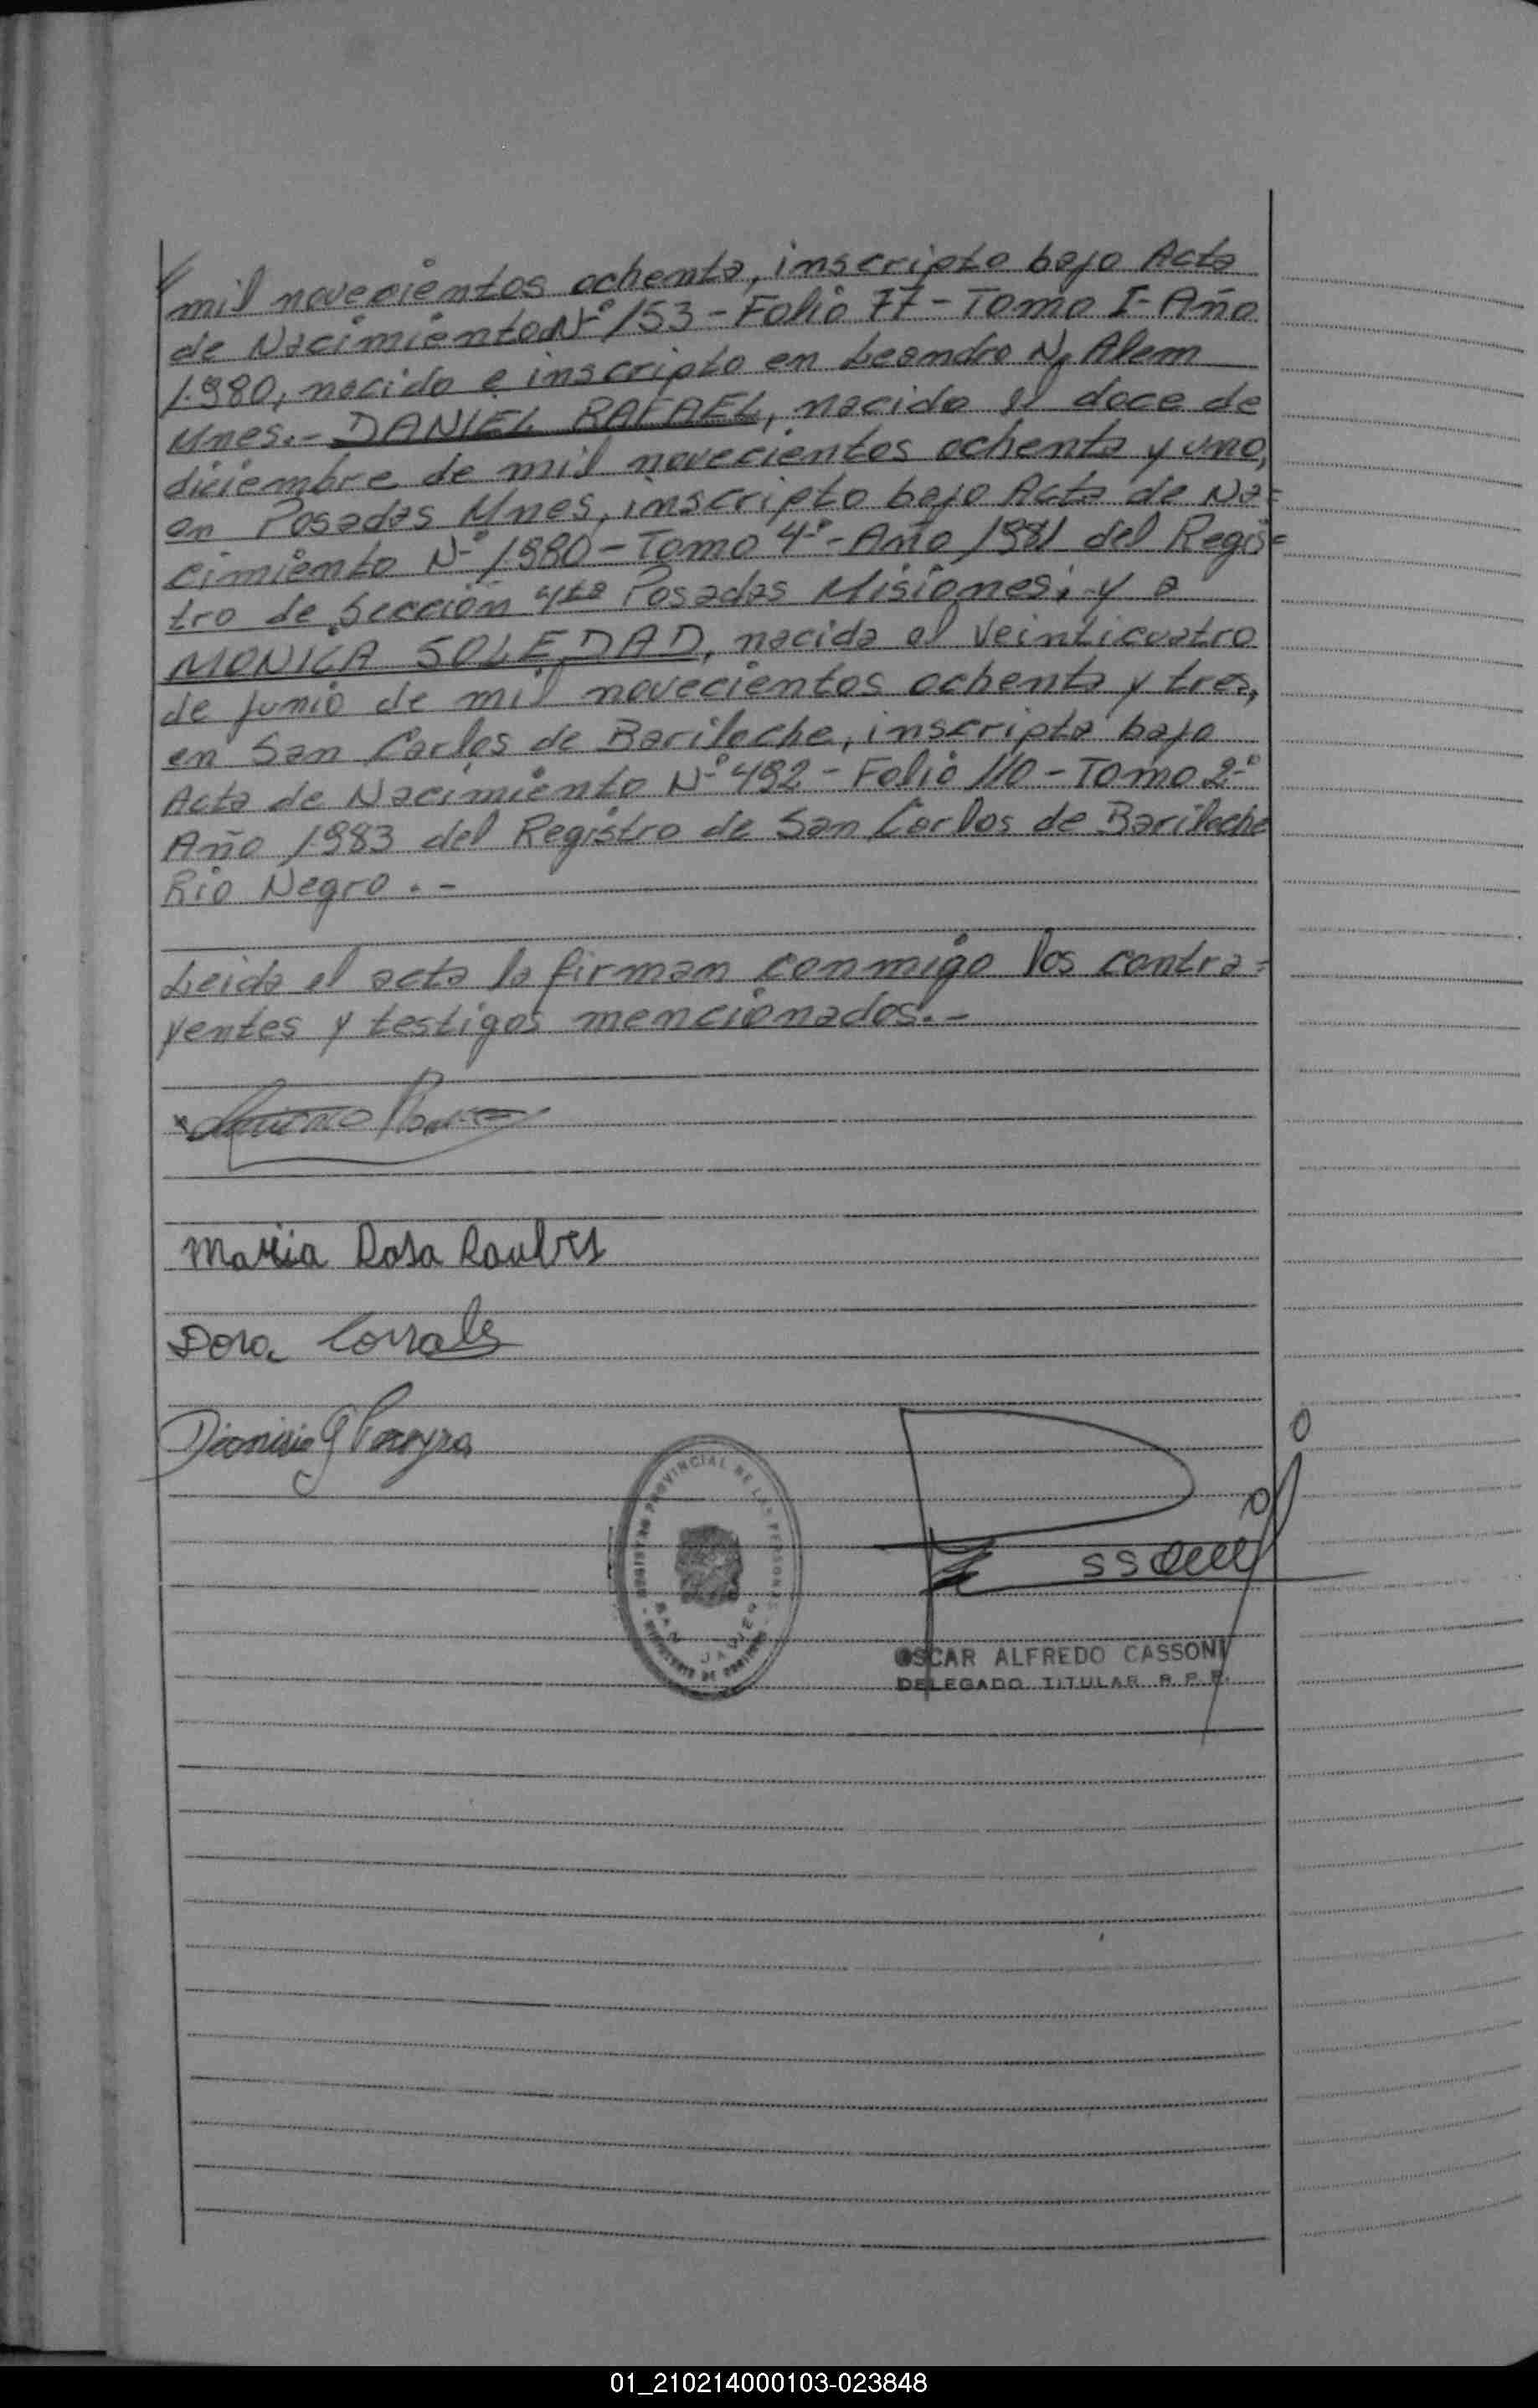 mil novecientos ochenta, inscripto bajo Acta
de Nacimiento Nº 153 - Folio 77 - Tomo I - Año
1.980, nacido e inscripto en Leandro N. Alem
Mnes.- DANIEL RAFAEL, nacido el doce de
diciembre de mil novecientos ochenta y uno,
en Posadas Mnes, inscripto bajo Acta de Na=
cimiento Nº 1.980 - Tomo 4º - Año 1981 del Regis=
tro de Sección 4ta Posadas Misiones; y a
MONICA SOLEDAD, nacida el veinticuatro
de junio de mil novecientos ochenta y tres,
en San Carlos de Bariloche, inscripta bajo
Acta de Nacimiento Nº 492 - Folio 110 - Tomo 2º
Año 1.983 del Registro de San Carlos de Bariloche
Rio Negro. -
Leida el acta la firman conmigo los contra=
yentes y testigos mencionados. -
Maria Rosa
Dora Corrales
Dionisio G Pereyra
REGISTRO PROVINCIAL DE LAS PERSONAS
SAN JAVIER
OSCAR ALFREDO CASSONI
DELEGADO TITULAR R.P.P.
01_210214000103-023848